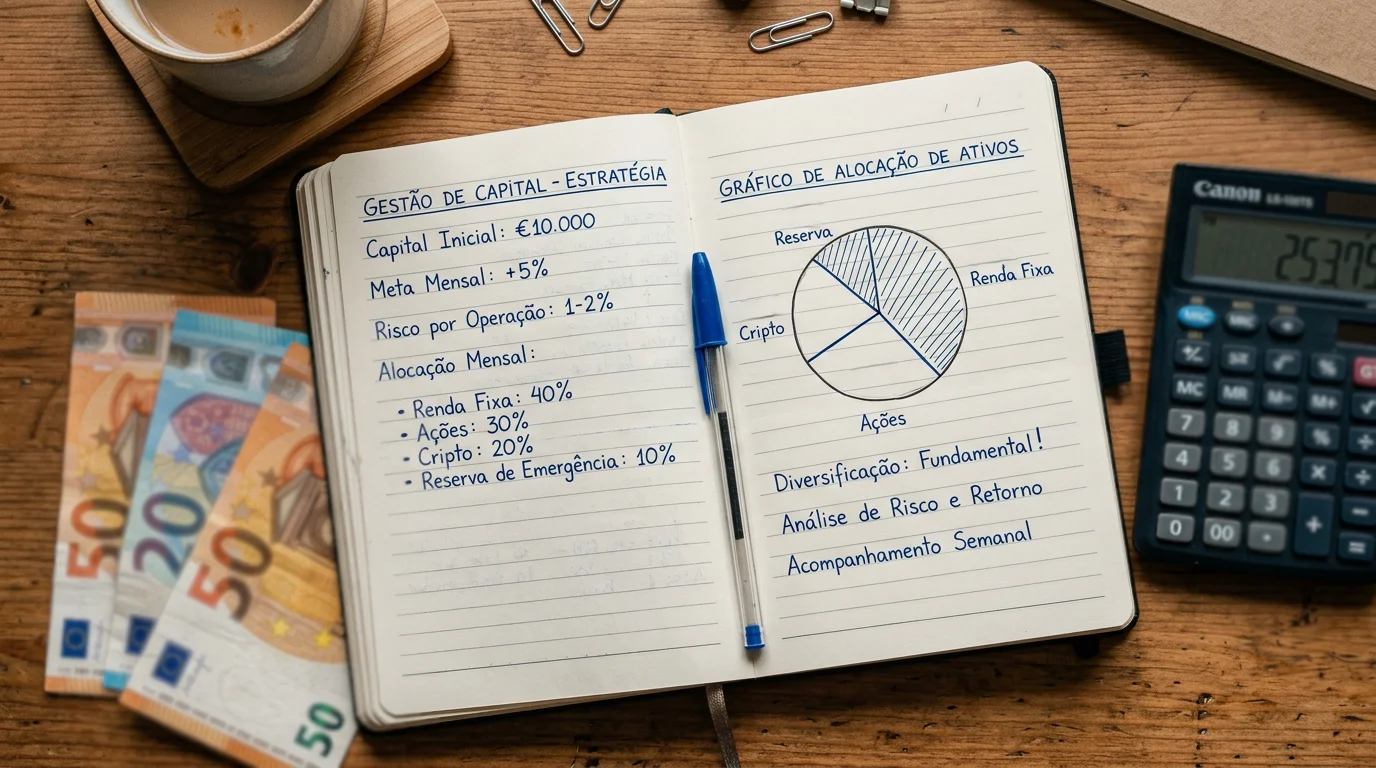 GESTÃO DE CAPITAL - ESTRATÉGIA
Capital Inicial: €10.000
Meta Mensal: +5%
Risco por Operação: 1-2%
Alocação Mensal:
• Renda Fixa: 40%
• Ações: 30%
• Cripto: 20%
• Reserva de Emergência: 10%
GRÁFICO DE ALOCAÇÃO DE ATIVOS
Reserva
Renda Fixa
Cripto
Ações
Diversificação: Fundamental!
Análise de Risco e Retorno
Acompanhamento Semanal
50
20
50
50
Canon
MC MR M- M+
7 8 9 % ÷
4 5 6 × ÷
1 2 3 + −
0 00 . =